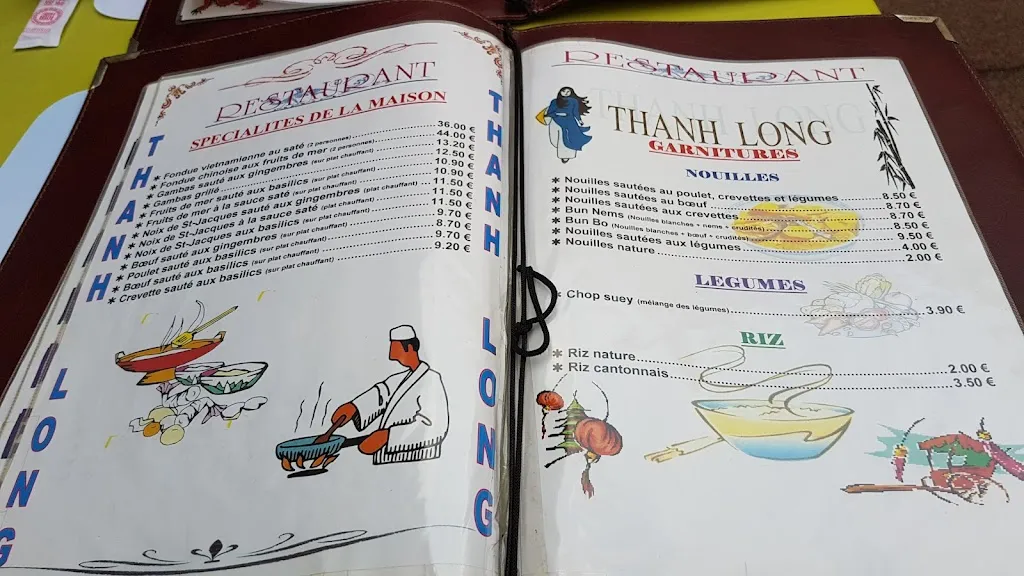 RESTAURANT
SPECIALITES DE LA MAISON
THANH LONG
THANH LONG
* Fondue vietnamienne au saté (2 personnes) 36.00 €
* Fondue chinoise aux fruits de mer (2 personnes) 44.00 €
* Gambas sauté aux gingembres (sur plat chauffant) 13.20 €
* Gambas grillé 12.50 €
* Fruits de mer sauté aux basilics (sur plat chauffant) 10.90 €
* Fruits de mer à la sauce saté (sur plat chauffant) 10.90 €
* Noix de St-Jacques sauté aux gingembres (sur plat chauffant) 11.50 €
* Noix de St-Jacques à la sauce saté (plat chauffant) 11.50 €
* Noix de St-Jacques aux basilics (sur plat chauffant) 11.50 €
* Bœuf sauté aux gingembres (sur plat chauffant) 9.70 €
* Poulet sauté aux basilics (sur plat chauffant) 8.70 €
* Bœuf sauté aux basilics (sur plat chauffant) 9.70 €
* Crevette sauté aux basilics (sur plat chauffant) 9.20 €
RESTAURANT
THANH LONG
GARNITURES
NOUILLES
* Nouilles sautées au poulet, crevettes et légumes 8.50 €
* Nouilles sautées au bœuf 8.70 €
* Nouilles sautées aux crevettes 8.70 €
* Bun Nems (Nouilles blanches + nems + crudités) 8.50 €
* Bun Bo (Nouilles blanches + bœuf + crudités) 9.50 €
* Nouilles sautées aux légumes 4.00 €
* Nouilles nature 2.00 €
LEGUMES
* Chop suey (mélange des légumes) 3.90 €
RIZ
* Riz nature 2.00 €
* Riz cantonnais 3.50 €